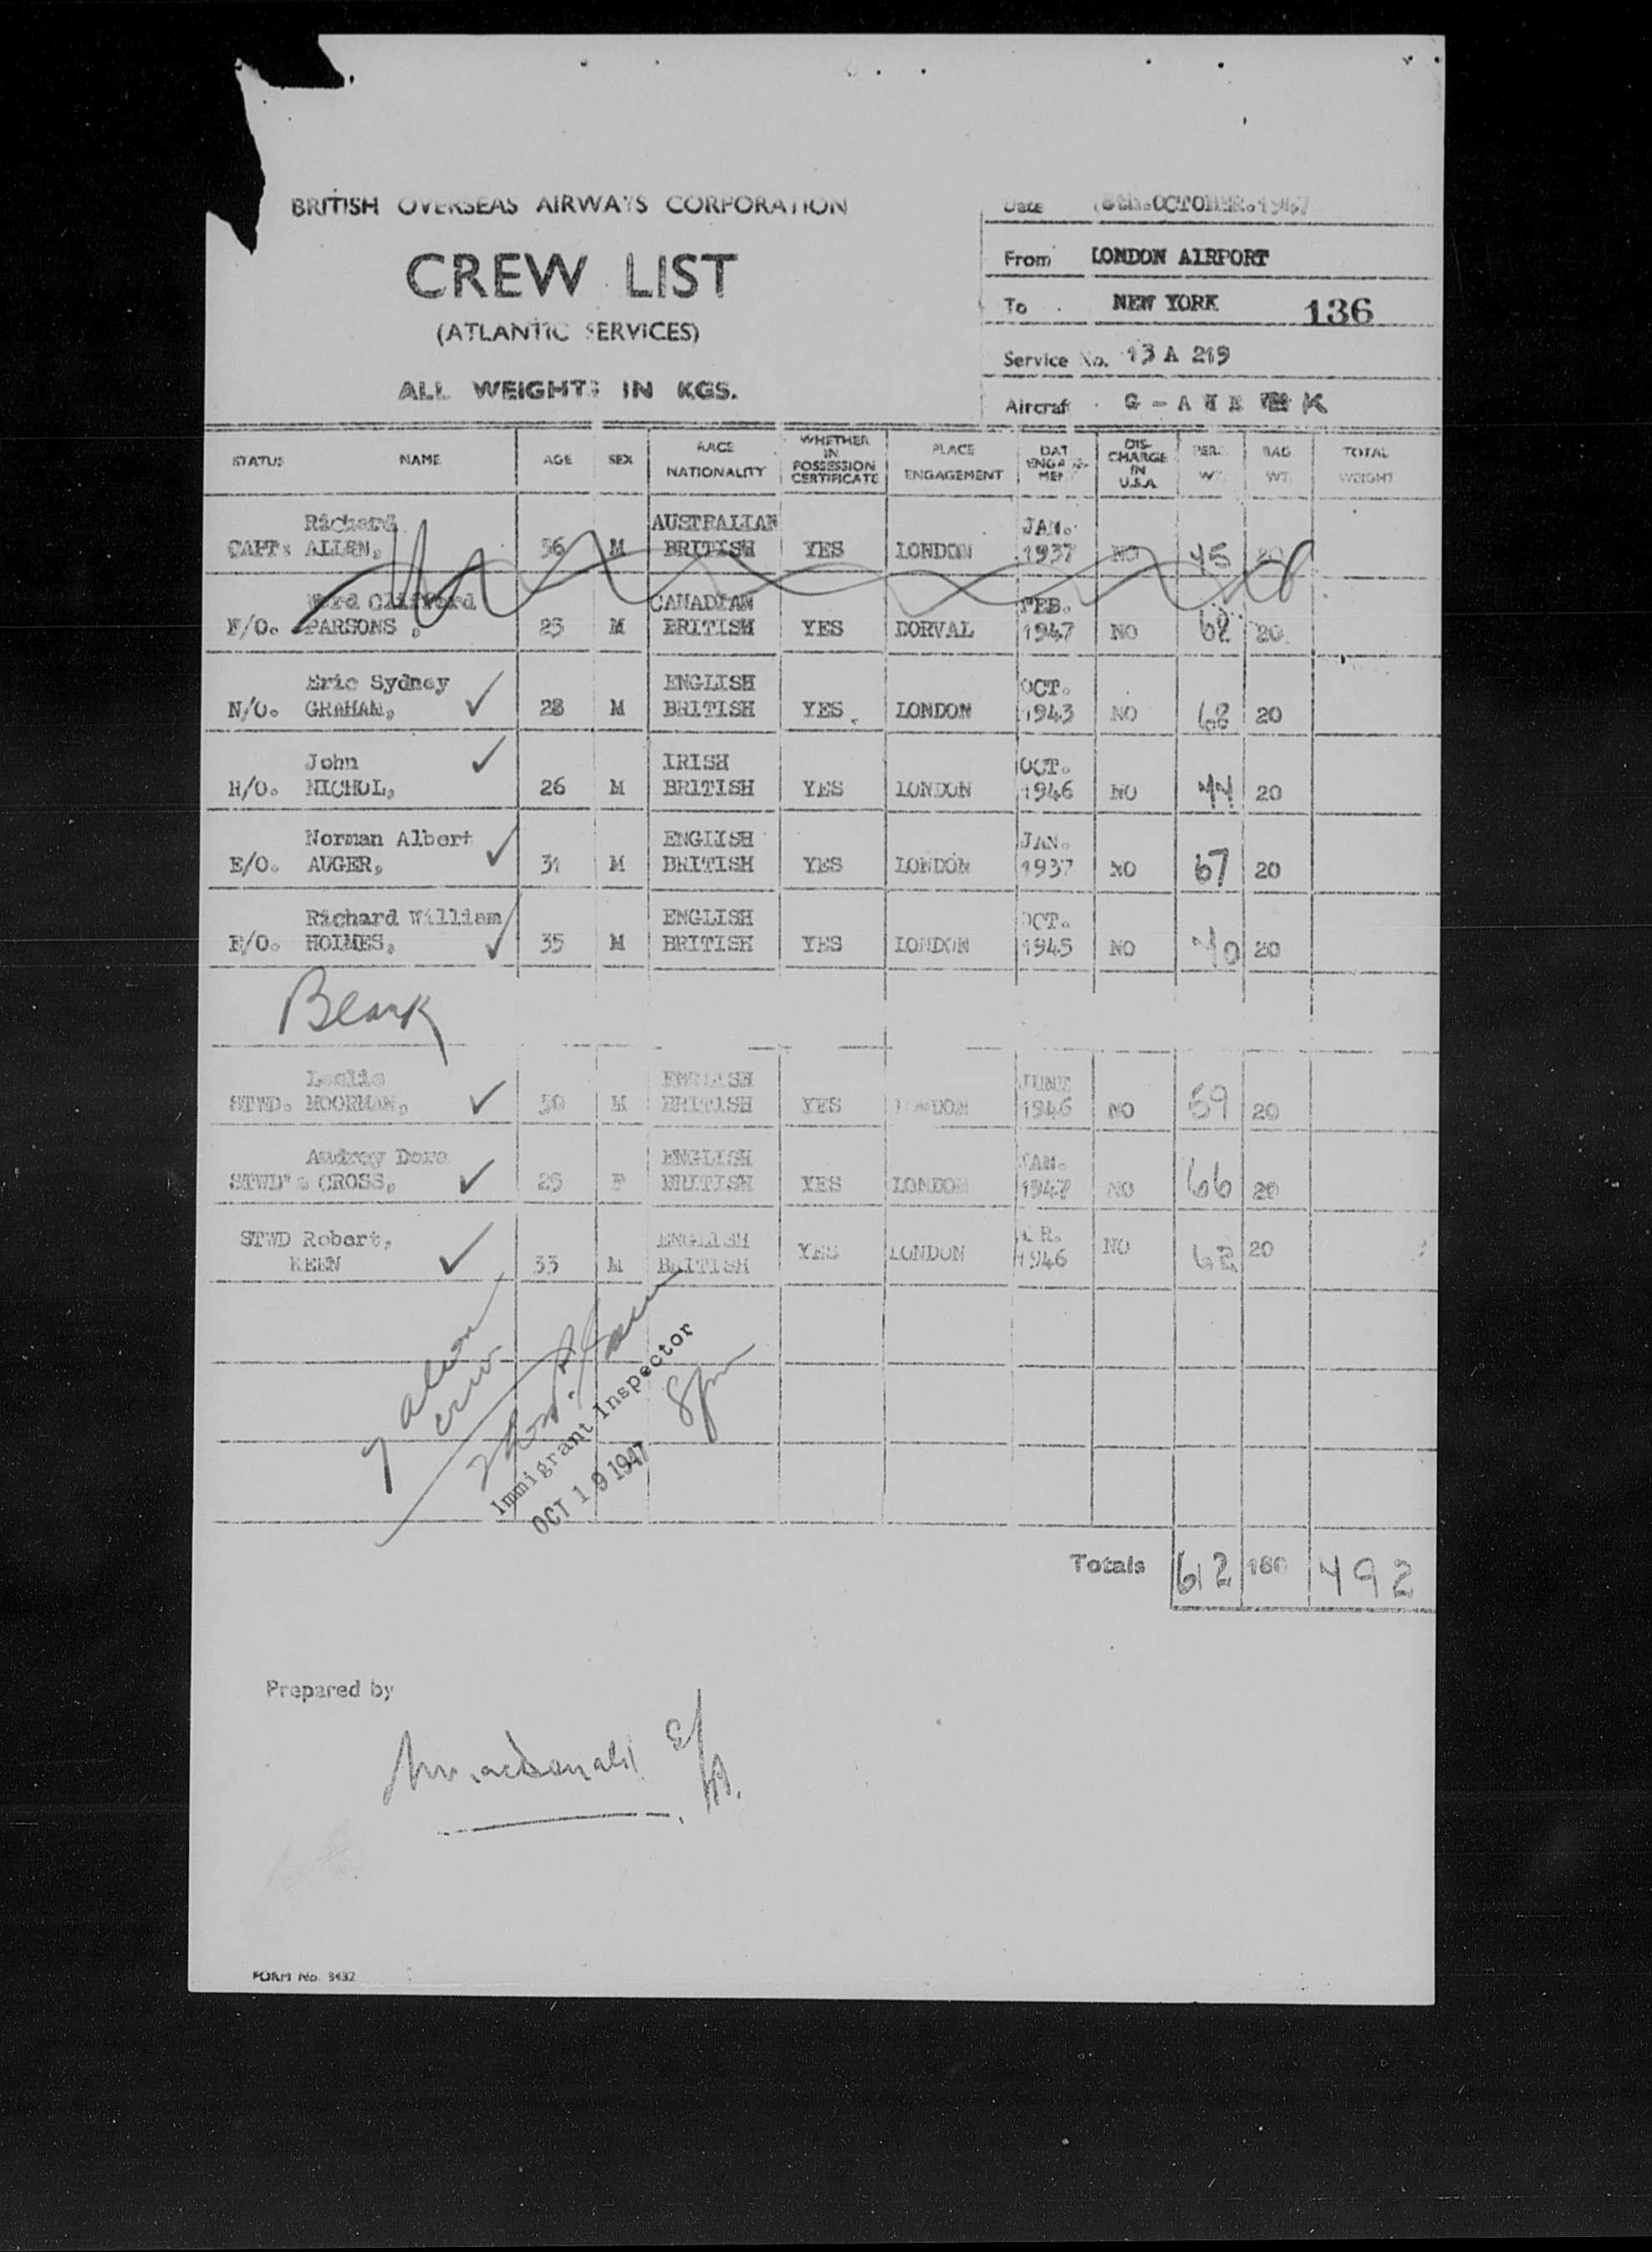 BRITISH OVERSEAS AIRWAYS CORPORATION
CREW LIST
(ATLANTIC SERVICES)
ALL WEIGHTS IN KGS.
Date OCTOBER.1947
From LONDON AIRPORT
To NEW YORK 136
Service No. 13 A 219
Aircraft G - A H E K
STATUS NAME AGE SEX RACE NATIONALITY WHETHER IN POSSESSION CERTIFICATE PLACE ENGAGEMENT DAT ENGA MEN DIS- CHARGE IN U.S.A. PERS. WT. BAG WT. TOTAL WEIGHT
Richard AUSTRALIAN JAN.
CAPT. ALLEN, 36 M BRITISH YES LONDON 1937 NO 75 20
Clifford CANADIAN FEB.
F/O. PARSONS, 23 M BRITISH YES DORVAL 1947 NO 62 20
Eric Sydney ENGLISH OCT.
N/O. GRAHAM, 28 M BRITISH YES LONDON 1943 NO 68 20
John IRISH OCT.
R/O. NICHOL, 26 M BRITISH YES LONDON 1946 NO 77 20
Norman Albert ENGLISH JAN.
E/O. AUGER, 31 M BRITISH YES LONDON 1937 NO 67 20
Richard William ENGLISH OCT.
E/O. HOLMES, 35 M BRITISH YES LONDON 1945 NO 70 20
Blank
Leslie ENGLISH JUNE
STWD. MOORMAN, 30 M BRITISH YES LONDON 1946 NO 59 20
Audrey Dora ENGLISH JAN.
STWD"S CROSS, 25 F BRITISH YES LONDON 1947 NO 66 20
STWD Robert, ENGLISH
KEEN 33 M BRITISH YES LONDON 1946 NO 68 20
7 alien
crew
Immigrant Inspector
8pm
OCT 19 1947
Totals 612 180 792
Prepared by
Macdonald
FORM No. 3432